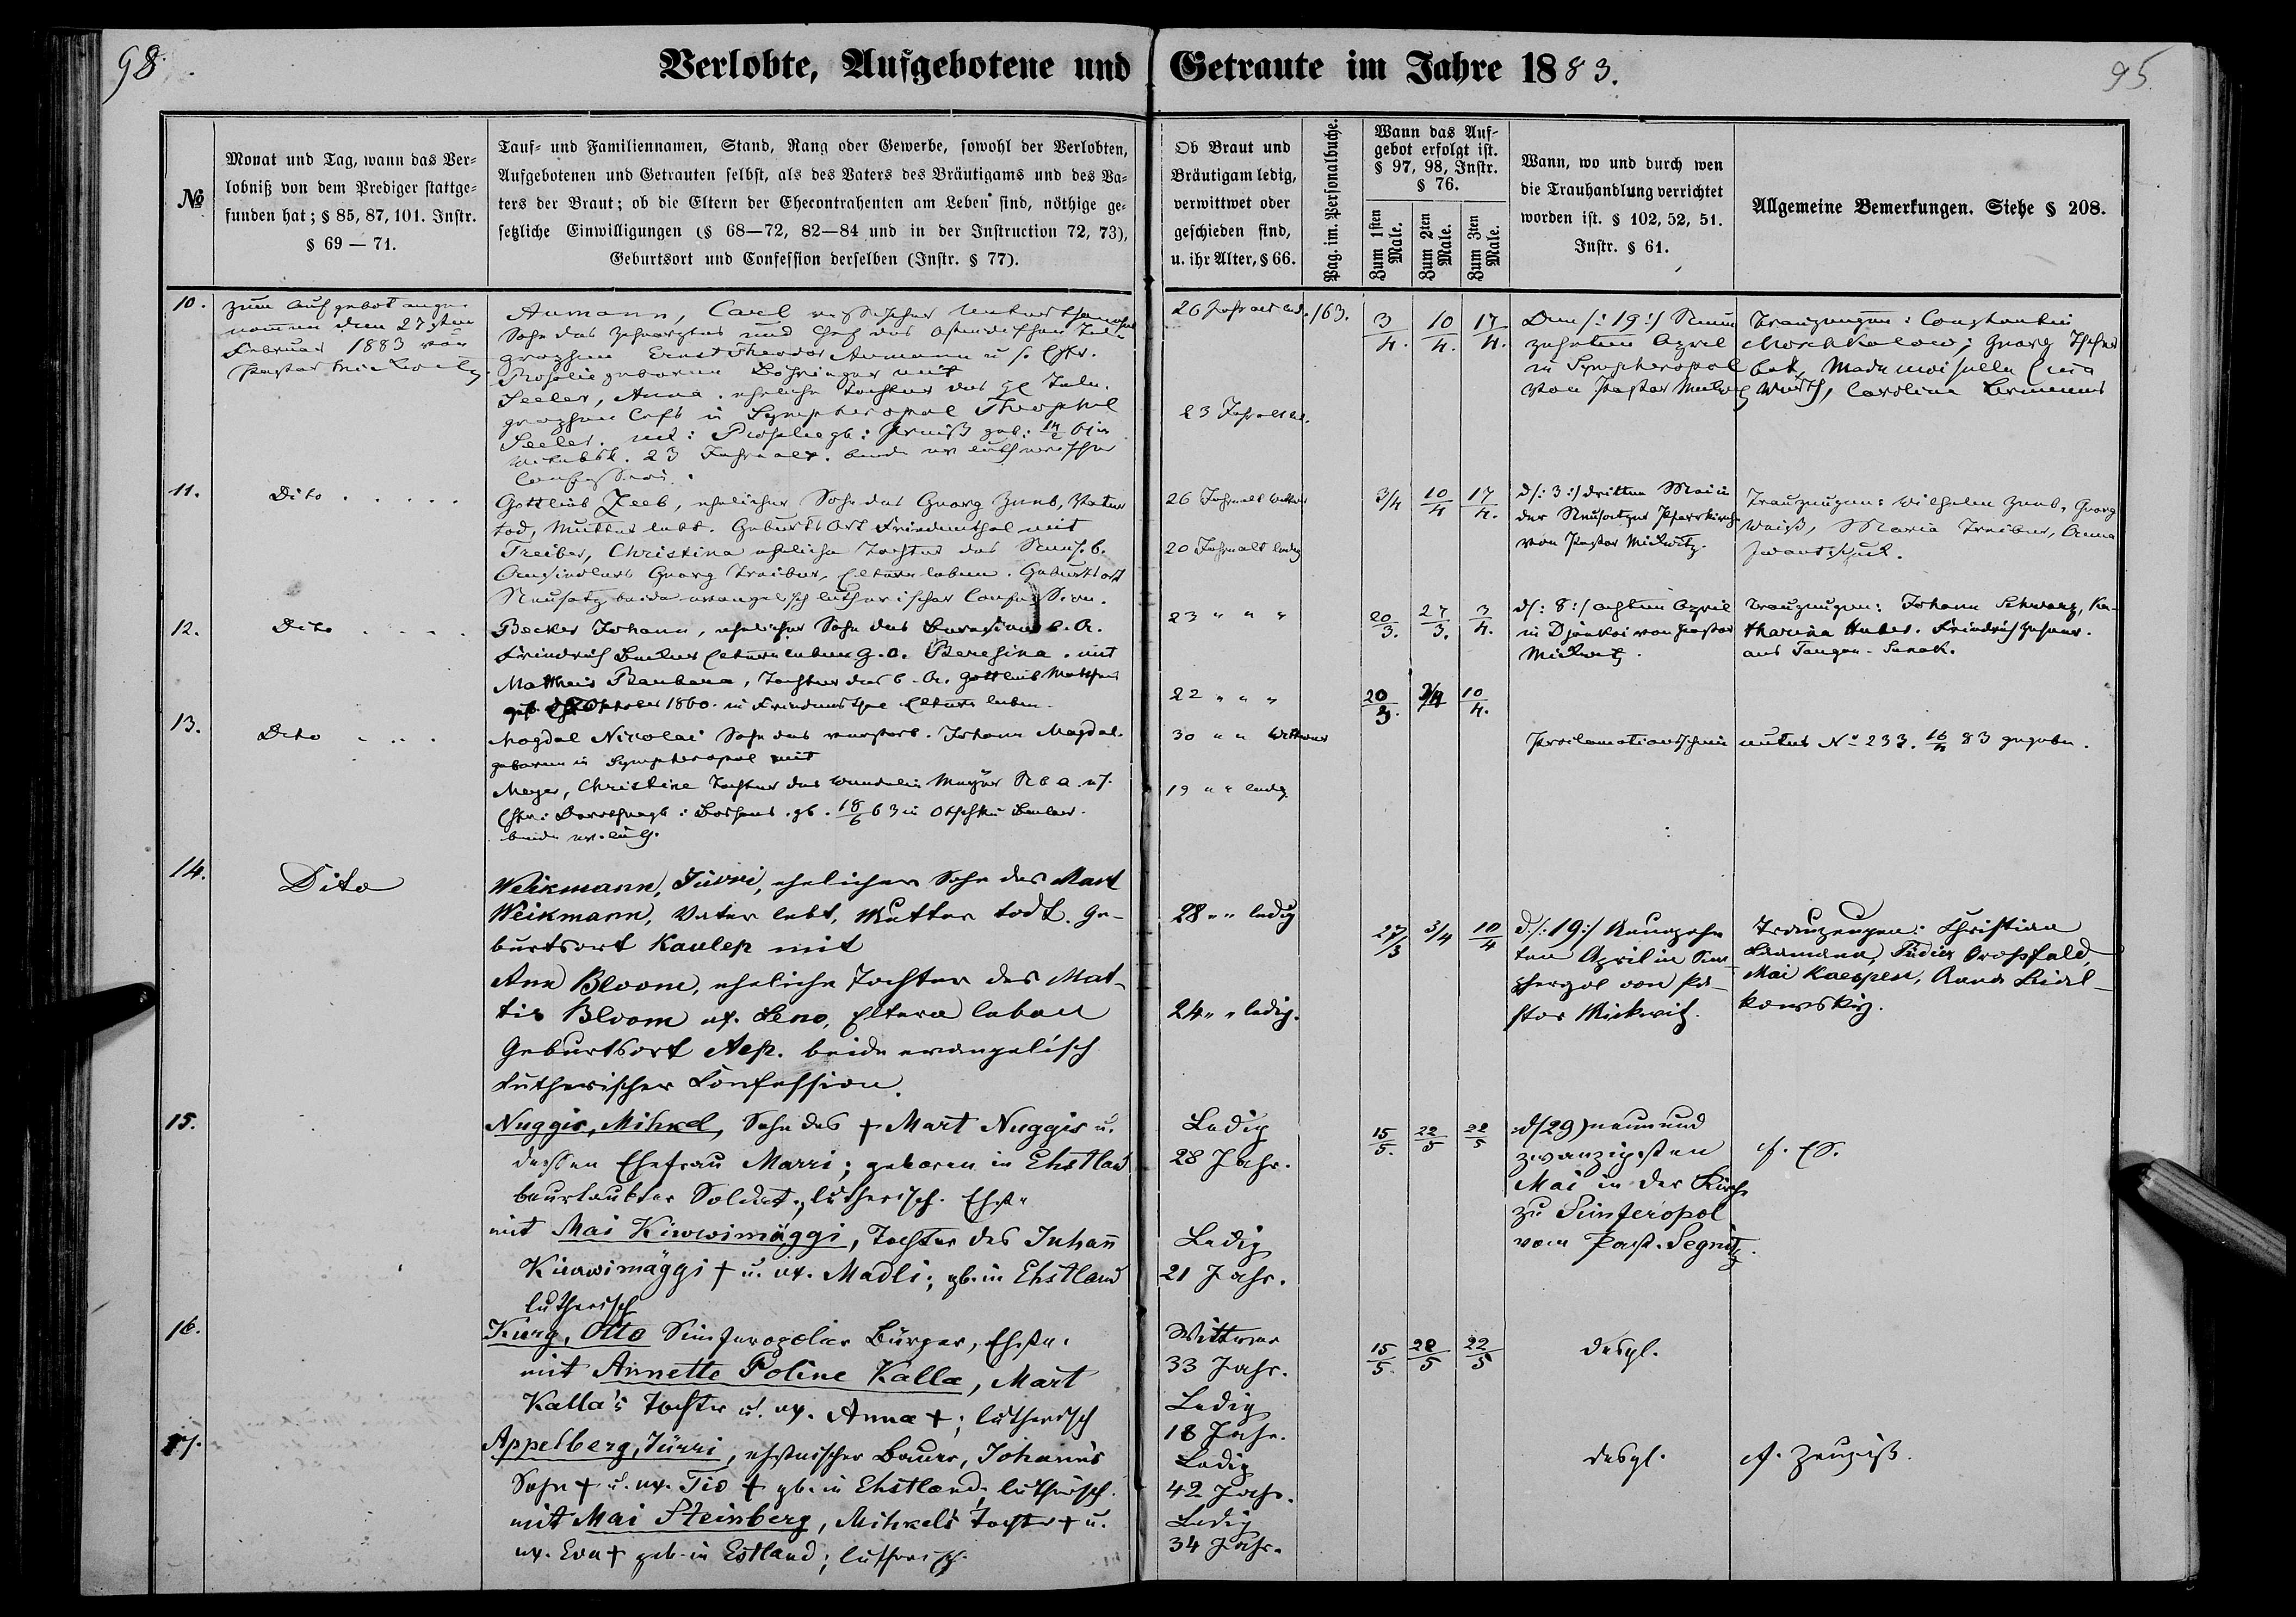 98.
Verlobte, Aufgebotene und Getraute im Jahre 1883.
95.
№
Monat und Tag, wann das Ver-
lobniß von dem Prediger stattge-
funden hat; § 85, 87, 101. Instr.
§ 69 — 71.
Tauf- und Familiennamen, Stand, Rang oder Gewerbe, sowohl der Verlobten,
Aufgebotenen und Getrauten selbst, als des Vaters des Bräutigams und des Va-
ters der Braut; ob die Eltern der Ehecontrahenten am Leben sind, nöthige ge-
setzliche Einwilligungen (§ 68—72, 82—84 und in der Instruction 72, 73),
Geburtsort und Confession derselben (Instr. § 77).
Ob Braut und
Bräutigam ledig,
verwittwet oder
geschieden sind,
u. ihr Alter, § 66.
Pag. im. Personalbuche.
Wann das Auf-
gebot erfolgt ist.
§ 97, 98, Instr.
§ 76.
Zum 1sten
Male.
Zum 2ten
Male.
Zum 3ten
Male.
Wann, wo und durch wen
die Trauhandlung verrichtet
worden ist. § 102, 52, 51.
Instr. § 61.
Allgemeine Bemerkungen. Siehe § 208.
10.
zum Aufgebot ange-
nommen den 27sten
Februar 1883 von
Pastor Mickwitz
Aumann, Carl
Sohn des
Ernst Theodor Aumann u.
Rosalie geborene mit
Seeler, Anna. eheliche Tochter des
in Sympheropol Theophil
Seeler.
23 Jahr alt. beide ev lutherischer
Confession.
26 Jahr alt led.
23 Jahr alt led.
163.
3/4.
10/4.
17/4.
Den /: 19 :/ Neun
zehnten April
in Sympheropol
von Pastor Mickwitz
Trauzeugen: Constantin
Moschkalow; Georg
Mademoiselle
Caroline
11.
Dito . . . . .
Gottlieb Zeeb, ehelicher Sohn des Georg Zeeb, Vater
tod, Mutter lebt. Geburtsort Friedenthal mit
Treiber, Christina eheliche Tochter des Neus. b.
Ansiedlers Georg Treiber, Eltern leben. Geburtsort
Neusatz beide evangelisch lutherischer Confession.
26 Jahr alt
20 Jahr alt ledig
3/4
10/4
17/4.
d/: 3 :/ dritten Mai in
der Neusatzer Pfarrkirche
von Pastor Mickwitz.
Trauzeugen: Wilhelm Zeeb, Georg
Weiß, Maria Treiber, Anna
12.
Dito . . . .
Becker Johann, ehelicher Sohn des
Friedrich Becker Eltern leben G. O. Beresina. mit
Mattheis Barbara, Tochter des G. A. Gottlieb Mattheis
October 1860. in Friedensthal Eltern leben.
23 " " "
22 " " "
20/3.
27/3.
3/4.
20/3.
3/4
10/4.
d/: 8 :/ achten April
in Djankoi von Pastor
Mickwitz.
Trauzeugen: Johann Schwarz, Ka-
tharina Huber. Friedrich
aus
13.
Dito . . . .
Magdal Nicolai Sohn des verstorb. Johann Magdal.
geboren in Sympheropol mit
Meyer, Christine Tochter des Wendelin Meyer
gb. 18/6 63 in
beide ev. luth.
30 " " Wittwer
19 " " ledig
Proclamationsschein unter No 233. 83 gegeben.
14.
Dito
Weikmann, Jürri, ehelicher Sohn des Mart
Weikmann, Vater lebt, Mutter todt. Ge-
burtsort Kaulep mit
Ann Bloom, eheliche Tochter des Mat-
tis Bloom ux. Leno, Eltern leben
Geburtsort Aep. beide evangelisch
lutherischer Confession.
28 " " ledig
24 " " ledig.
27/3
3/4
10/4
d:/: 19 :/ Neunzehn
ten April in Sim-
pheropol von Pa-
stor Mickwitz.
Trauzeugen: Christian
Mai Kaespen, Anna
kowsky.
15.
Nuggis, Mihkel, Sohn des † Mart Nuggis u.
dessen Ehefrau Marri; geboren in Ehstland
beurlaubter Soldat, lutherisch. Ehste
mit Mai Kiwwimäggi, Tochter des Juhann
Kiwwimäggi † u. ux. Madli; gb. in Ehstland
lutherisch
Ledig
28 Jahr.
Ledig
21 Jahr.
15/5.
22/5
22/5
d/29) neunund
zwanzigsten
Mai in der Kirche
zu Simferopol
vom Past. Segnitz.
16.
Kurg, Otto Simferopoler Bürger, Ehste.
mit Annette Poline Kalla, Mart
Kalla's Tochter u. ux. Anna †; lutherisch
Wittwer
33 Jahr.
Ledig
18 Jahr.
15/5.
22/5
22/5
desgl.
17.
Appelberg, Jürri, ehstnischer Bauer, Johann's
Sohn † u. ux. Tio † gb. in Ehstland, lutherisch.
mit Mai Steinberg, Mihkel's Tochter † u.
ux. Eva † geb. in Estland; lutherisch.
Ledig
42 Jahr.
Ledig
34 Jahr.
desgl.
cf. Zeugniß.